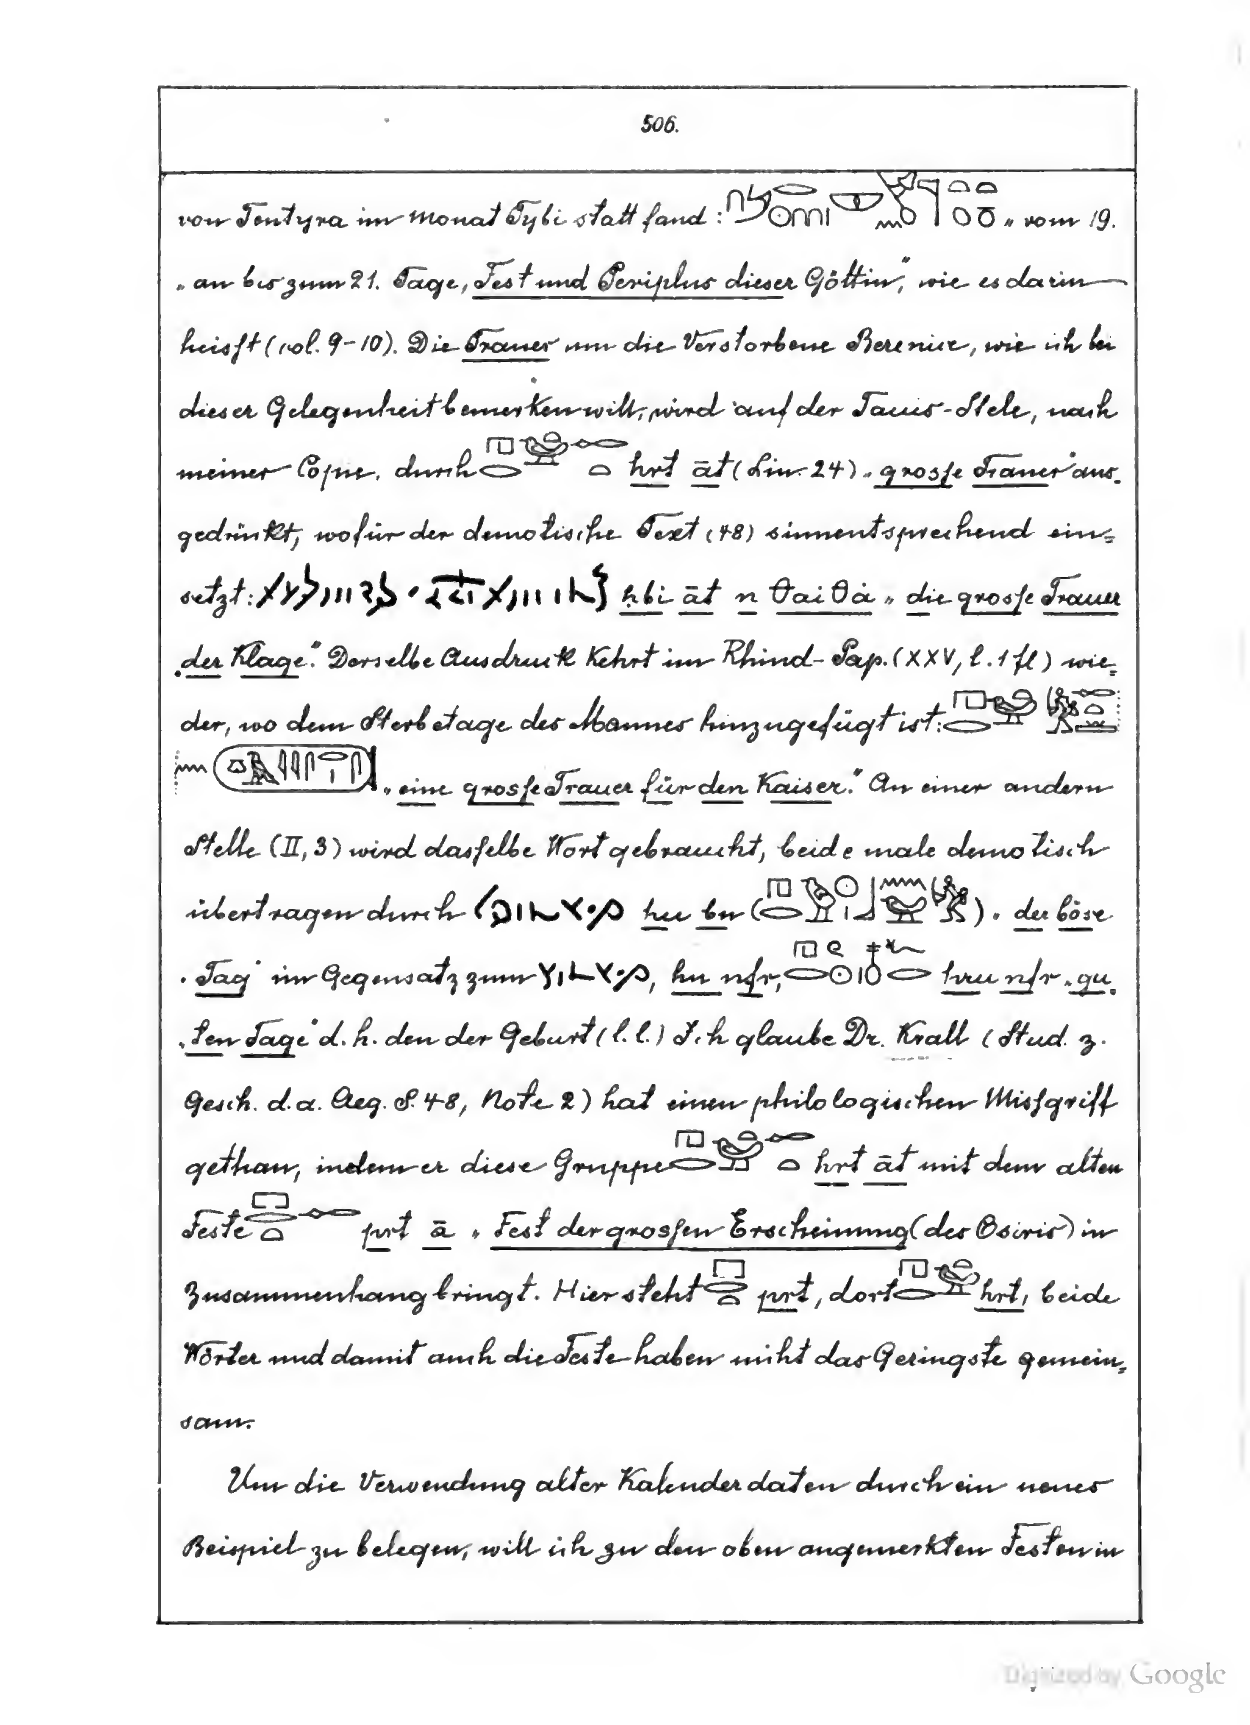 506.
von Tentyra im Monat Tybi statt fand: „vom 19.
„an bis zum 21. Tage, Fest und Periplus dieser Göttin“, wie es darin
heisst (col. 9-10). Die Trauer um die Verstorbene Berenice, wie ich bei
dieser Gelegenheit bemerken will, wird auf der Tanis-Stele, nach
meiner Copie, durch hrt āt (Lin. 24) „grosse Trauer“ aus-
gedrückt, wofür der demotische Text (48) sinnentsprechend ein-
setzt: ḥbi āt n θaiθȧ „die grosse Trauer
„der Klage“. Derselbe Ausdruck kehrt im Rhind-Pap. (XXV, l. 1 fl) wie-
der, wo dem Sterbetage des Mannes hinzugefügt ist:
„eine grosse Trauer für den Kaiser.“ An einer andern
Stelle (II, 3) wird dasselbe Wort gebraucht, beide male demotisch
übertragen durch hu bn ( ) „der böse
„Tag“ im Gegensatz zum , hu nfr, hru nfr „gu-
„ten Tage“ d. h. den der Geburt (l. l.) Ich glaube Dr. Krall (Stud. z.
Gesch. d. a. Aeg. S. 48, Note 2) hat einen philologischen Missgriff
gethan, indem er diese Gruppe hrt āt mit dem alten
Feste prt ā „Fest der grossen Erscheinung (des Osiris) in
Zusammenhang bringt. Hier steht prt, dort hrt, beide
Wörter und damit auch die Feste haben nicht das Geringste gemein-
sam.
Um die Verwendung alter Kalenderdaten durch ein neues
Beispiel zu belegen, will ich zu den oben angemerkten Festen in
Digitized by Google